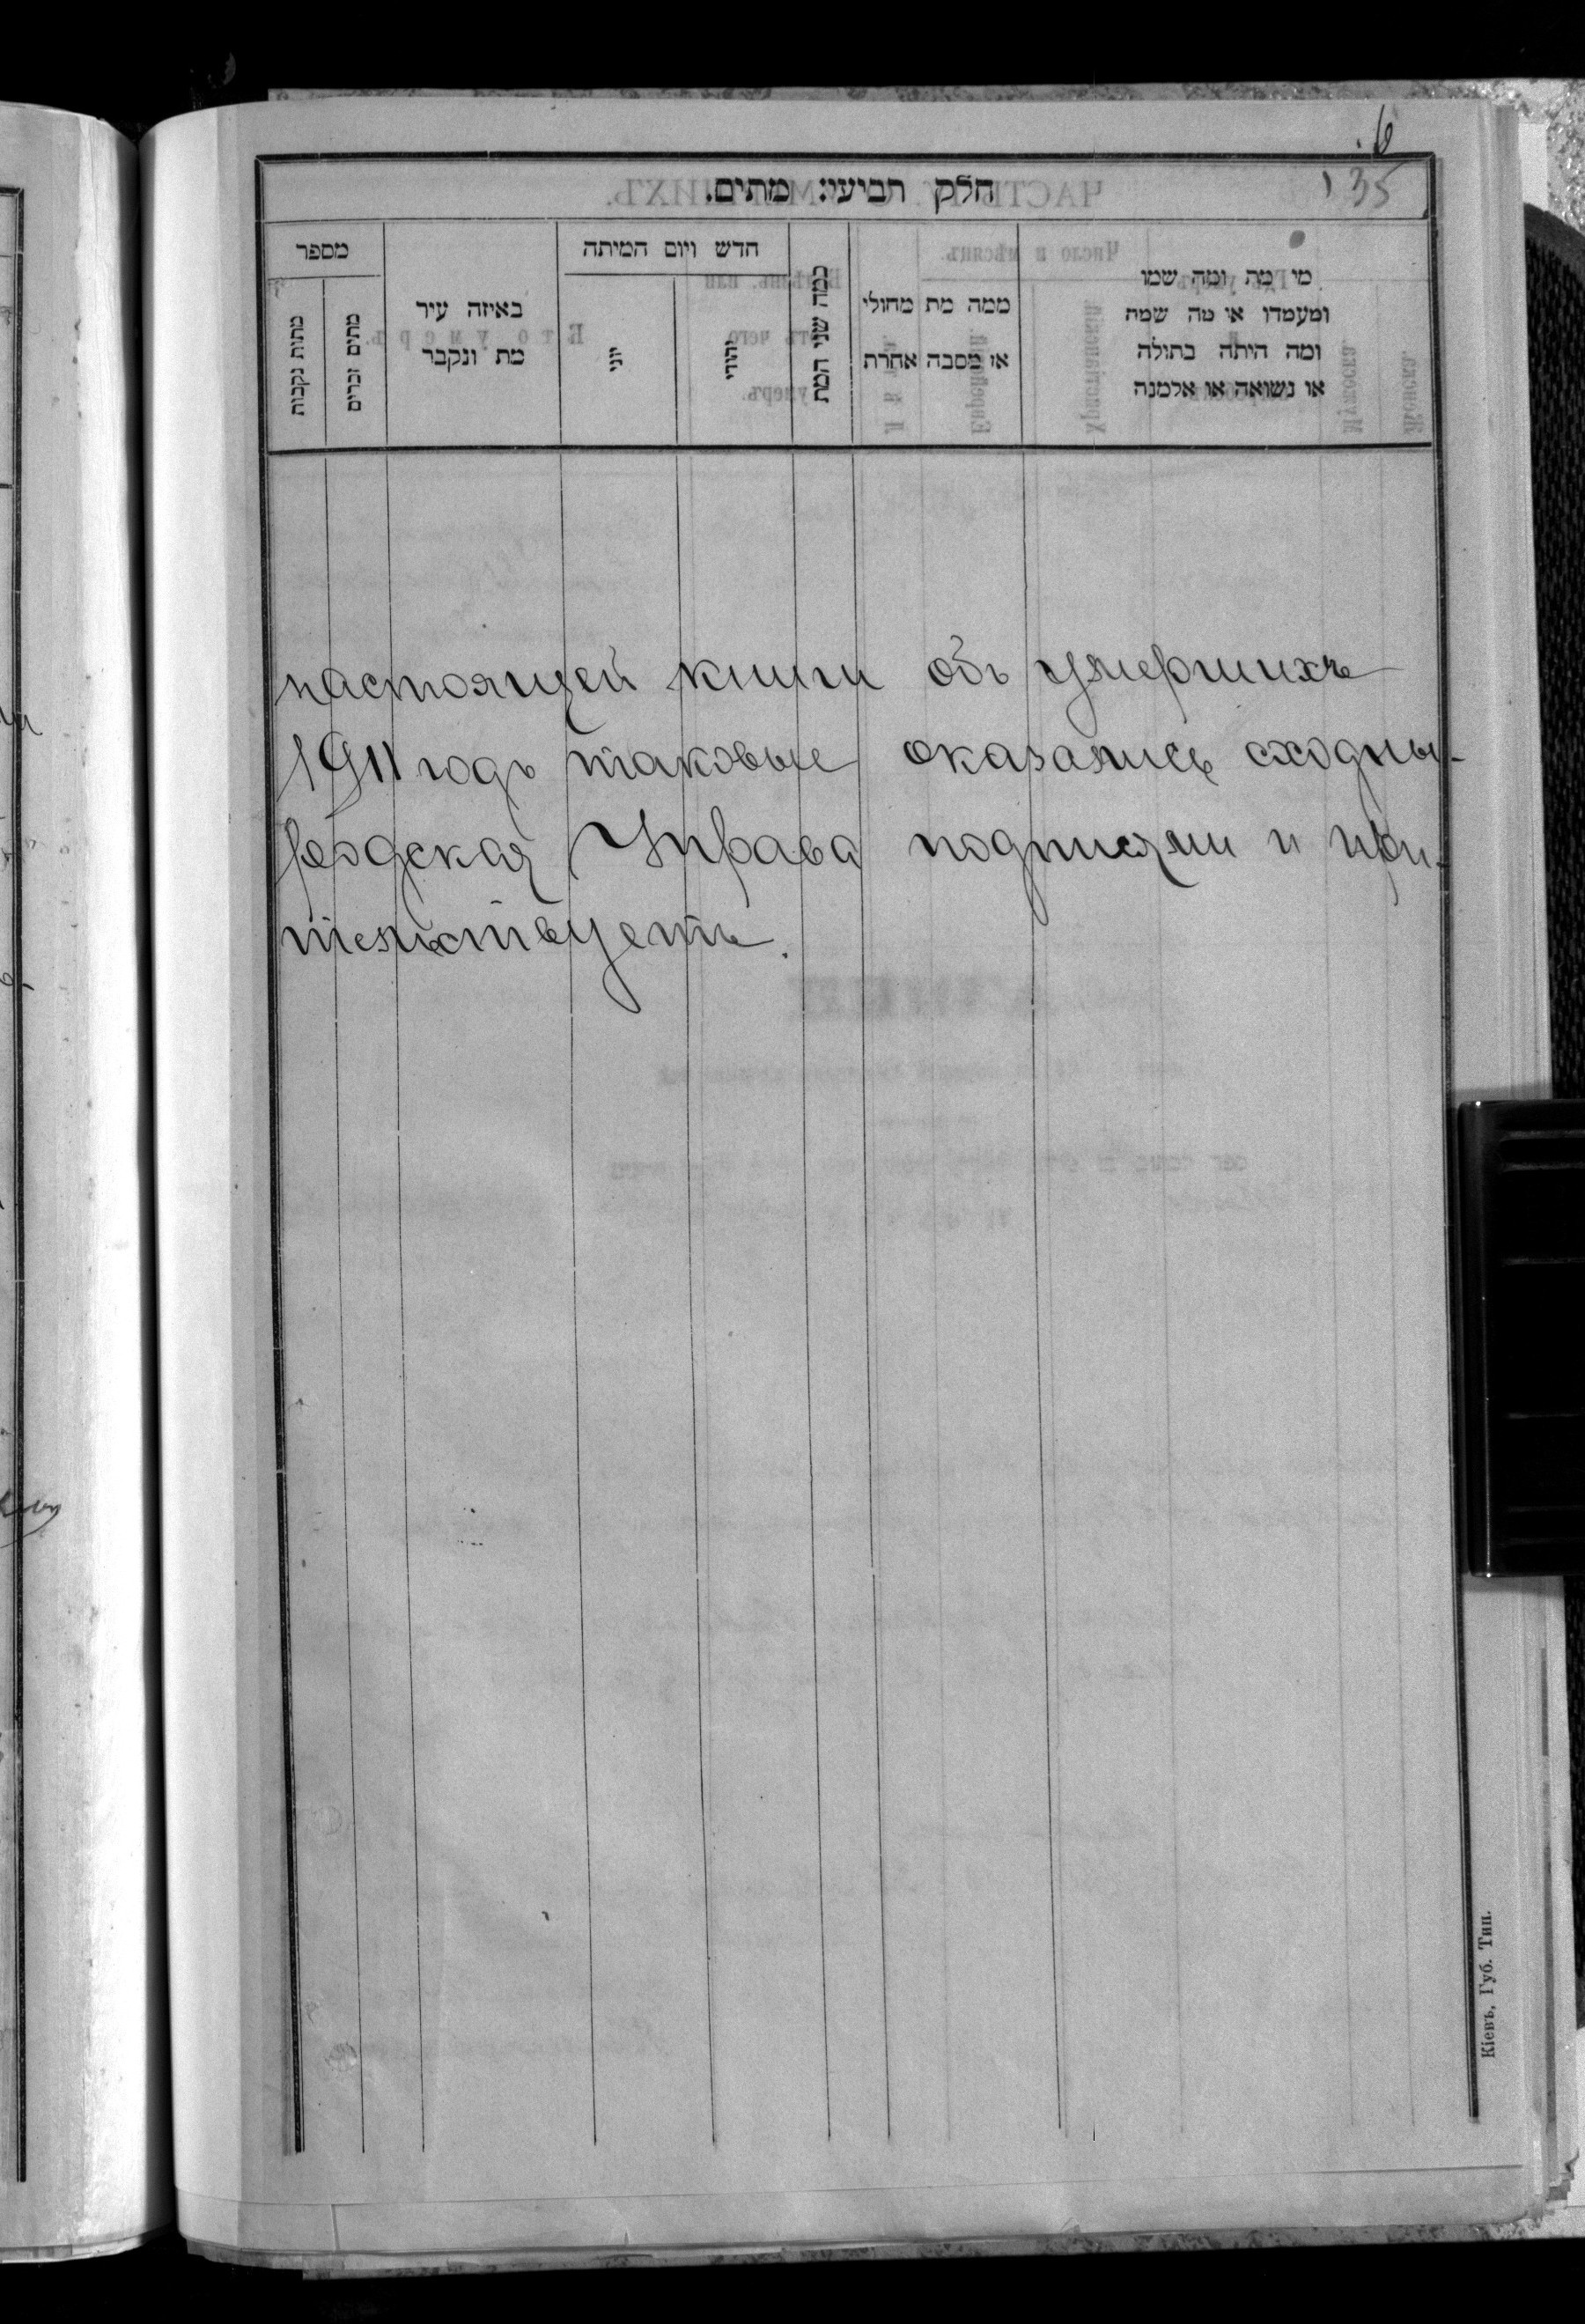 6
135
חלק רביעי: מתים.
מספר
מתות נקבות
מתים זכרים
באיזה עיר
מת ונקבר
חדש ויום המיתה
יוני
יהודי
כמה שני המת
ממה מת מחולי
או מסבה אחרת
מי מת ומה שמו
ומעמדו או מה שמה
ומה היתה בתולה
או נשואה או אלמנה
настоящей книги объ умершихъ
1911 годъ таковые оказались сходны-
родская Управа подписями и при-
тельствуетъ.
Кіевъ, Губ. Тип.